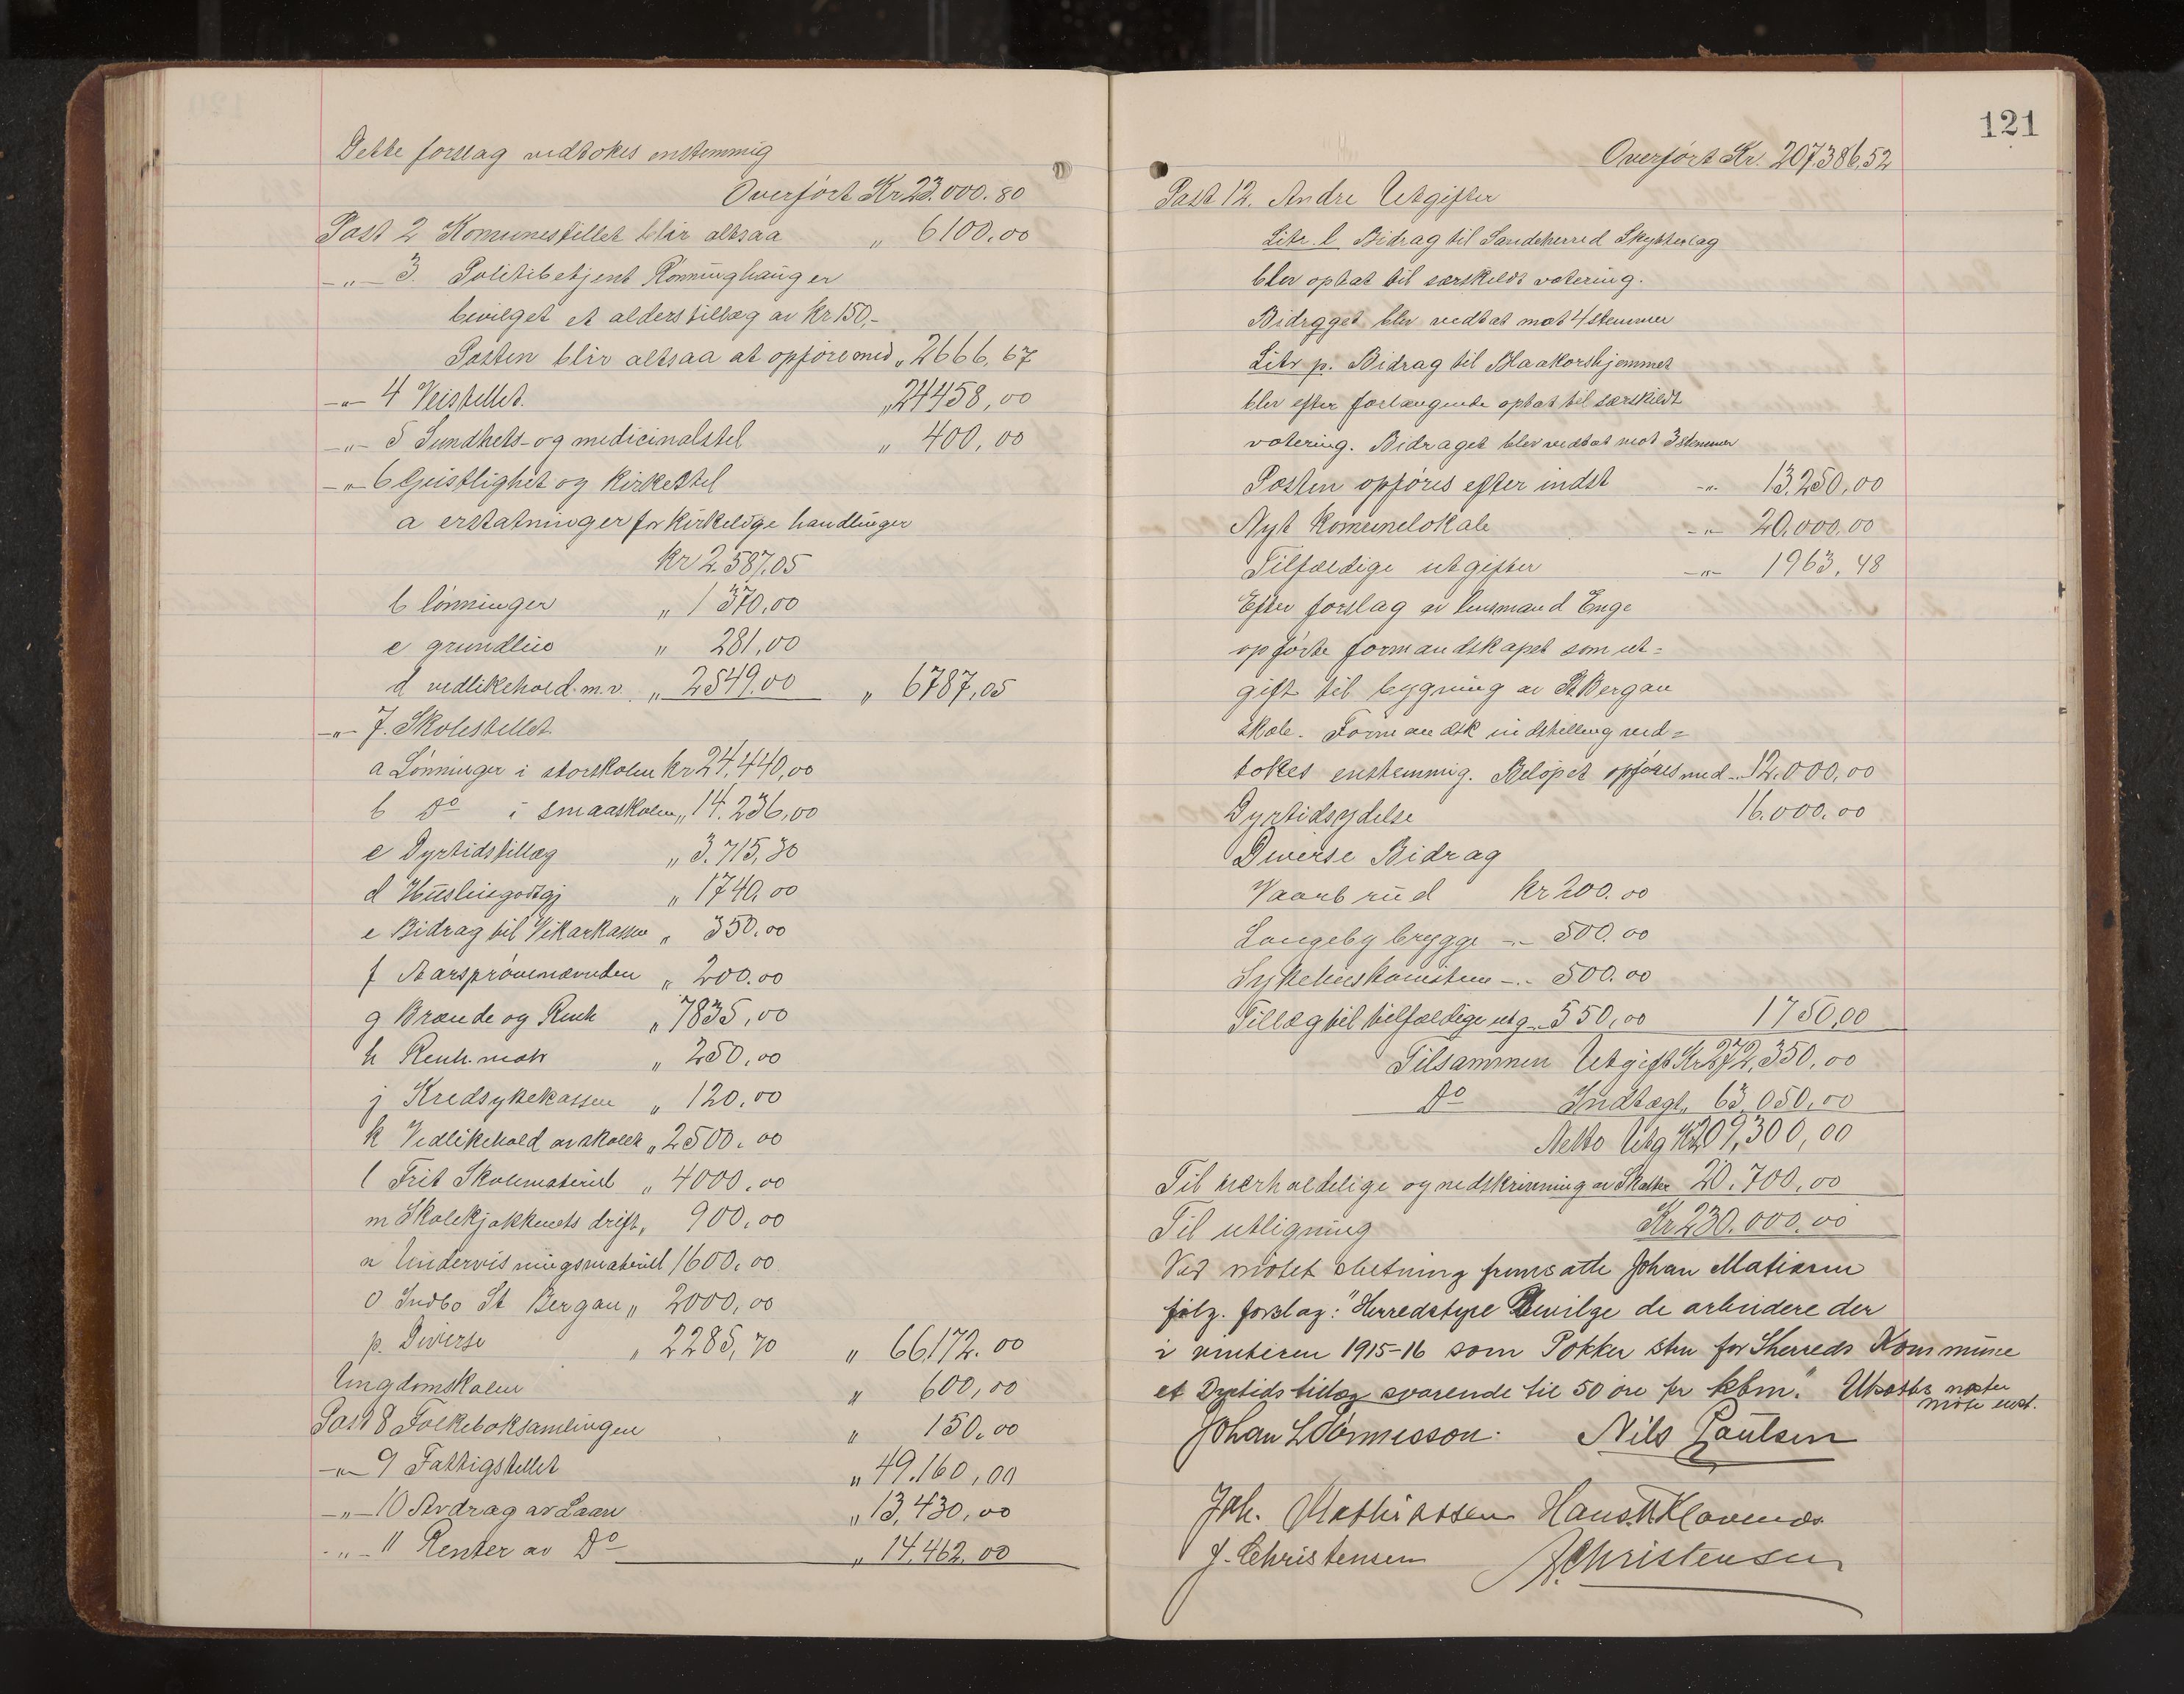 Dette forslag vedtokes enstemmig
Overført Kr 23.000.80
Post 2 Komunestellet blir altsaa " 6100,00
-"- 3. Politibetjent Rønninghauger
bevilget et alderstillæg av kr 150,-
Posten blir altsaa at opføre med " 2666,67
-"- 4 Veistellet. " 24458,00
-"- 5 Sundhets- og medicinalstel " 400,00
-"- 6 Geistlighet og Kirkestel
a erstatninger for kirkelige handlinger
kr 2.587.05
b lønninger " 1370,00
c grundleie " 281,00
d vedlikehold m.v. " 2549.00 " 6787,05
-"- 7. Skolestellet.
a Lønninger i storskolen kr 24,440,00
b Do i smaaskolen " 14.236,00
c Dyrtidstillæg " 3.715,30
d Husleiegodtgj " 1740,00
e Bidrag til Vikarkassen " 350.00
f Aarsprøvenævnden " 200.00
g Brænde og Renh " 7835,00
h Renh. " 250,00
j Kredsykekassen " 120,00
k Vedlikehold av skoler " 2500,00
l Frit Skolemateriel " 4000,00
m Skolekjøkkenets drift " 900,00
n Undervisningsmateriell 1600,00
o Indbo St Bergan " 2000,00
p. Diverse " 2285,70 " 66172.00
Ungdomskolen " 600,00
Post 8 Folkeboksamlingen " 150.00
-"- 9 Fattigstellet " 49.160,00
-"- 10 Avdrag av Laan " 13,430,00
-"- 11 Renter av Do " 14.462.00
121
Overført Kr. 207386,52
Post 12. Andre Utgifter
Litr. l Bidrag til Sandeherred Skytterlag
blev optat til særskildt votering.
Bidraget blev vedtat mot 4 stemmer
Litr p. Bidrag til Blaakorshjemmet
blev efter forlangende optat til særskildt
votering. Bidraget blev vedtat mot 3 stemmer
Posten opføres efter indst -"- 13.250,00
Nyt Komunelokale -"- 20.000,00
Tilfældige utgifter -"- 1963,48
Efter forslag av lensmand Enge
opførte formandskapet som ut=
gift til bygning av St Bergan
skole. Formandsk indstilling ved=
tokes enstemmig. Beløpet opføres med -"- 12.000,00
Dyrtidsydelse 16.000.00
Diverse Bidrag
Vaarbrud kr 200.00
Langeby brygge -"- 500.00
Sykehuskomiteen -"- 500.00
Tillæg til tilfældige utg -"- 550,00 1750,00
Tilsammen Utgift Kr 272,350,00
Do Indtægt " 63.050,00
Netto Utg Kr 209,300,00
Til uerholdelige og nedskrivning av Skatter 20.700,00
Til utligning Kr 230.000.00
Ved møtet slutning fremsatte Johan Matiesen
følg. forslag: "Herredstyre Bevilge de arbeidere der
i vinteren 1915-16 som Pokker sten for Sherreds Kommune
et Dyrtidstillæg svarende til 50 øre pr kbm." Utsattes næste
møte enst.
Johan L Nils Paulsen
Joh. Mathiassen Hans Klavenes
J. Christensen A Christensen